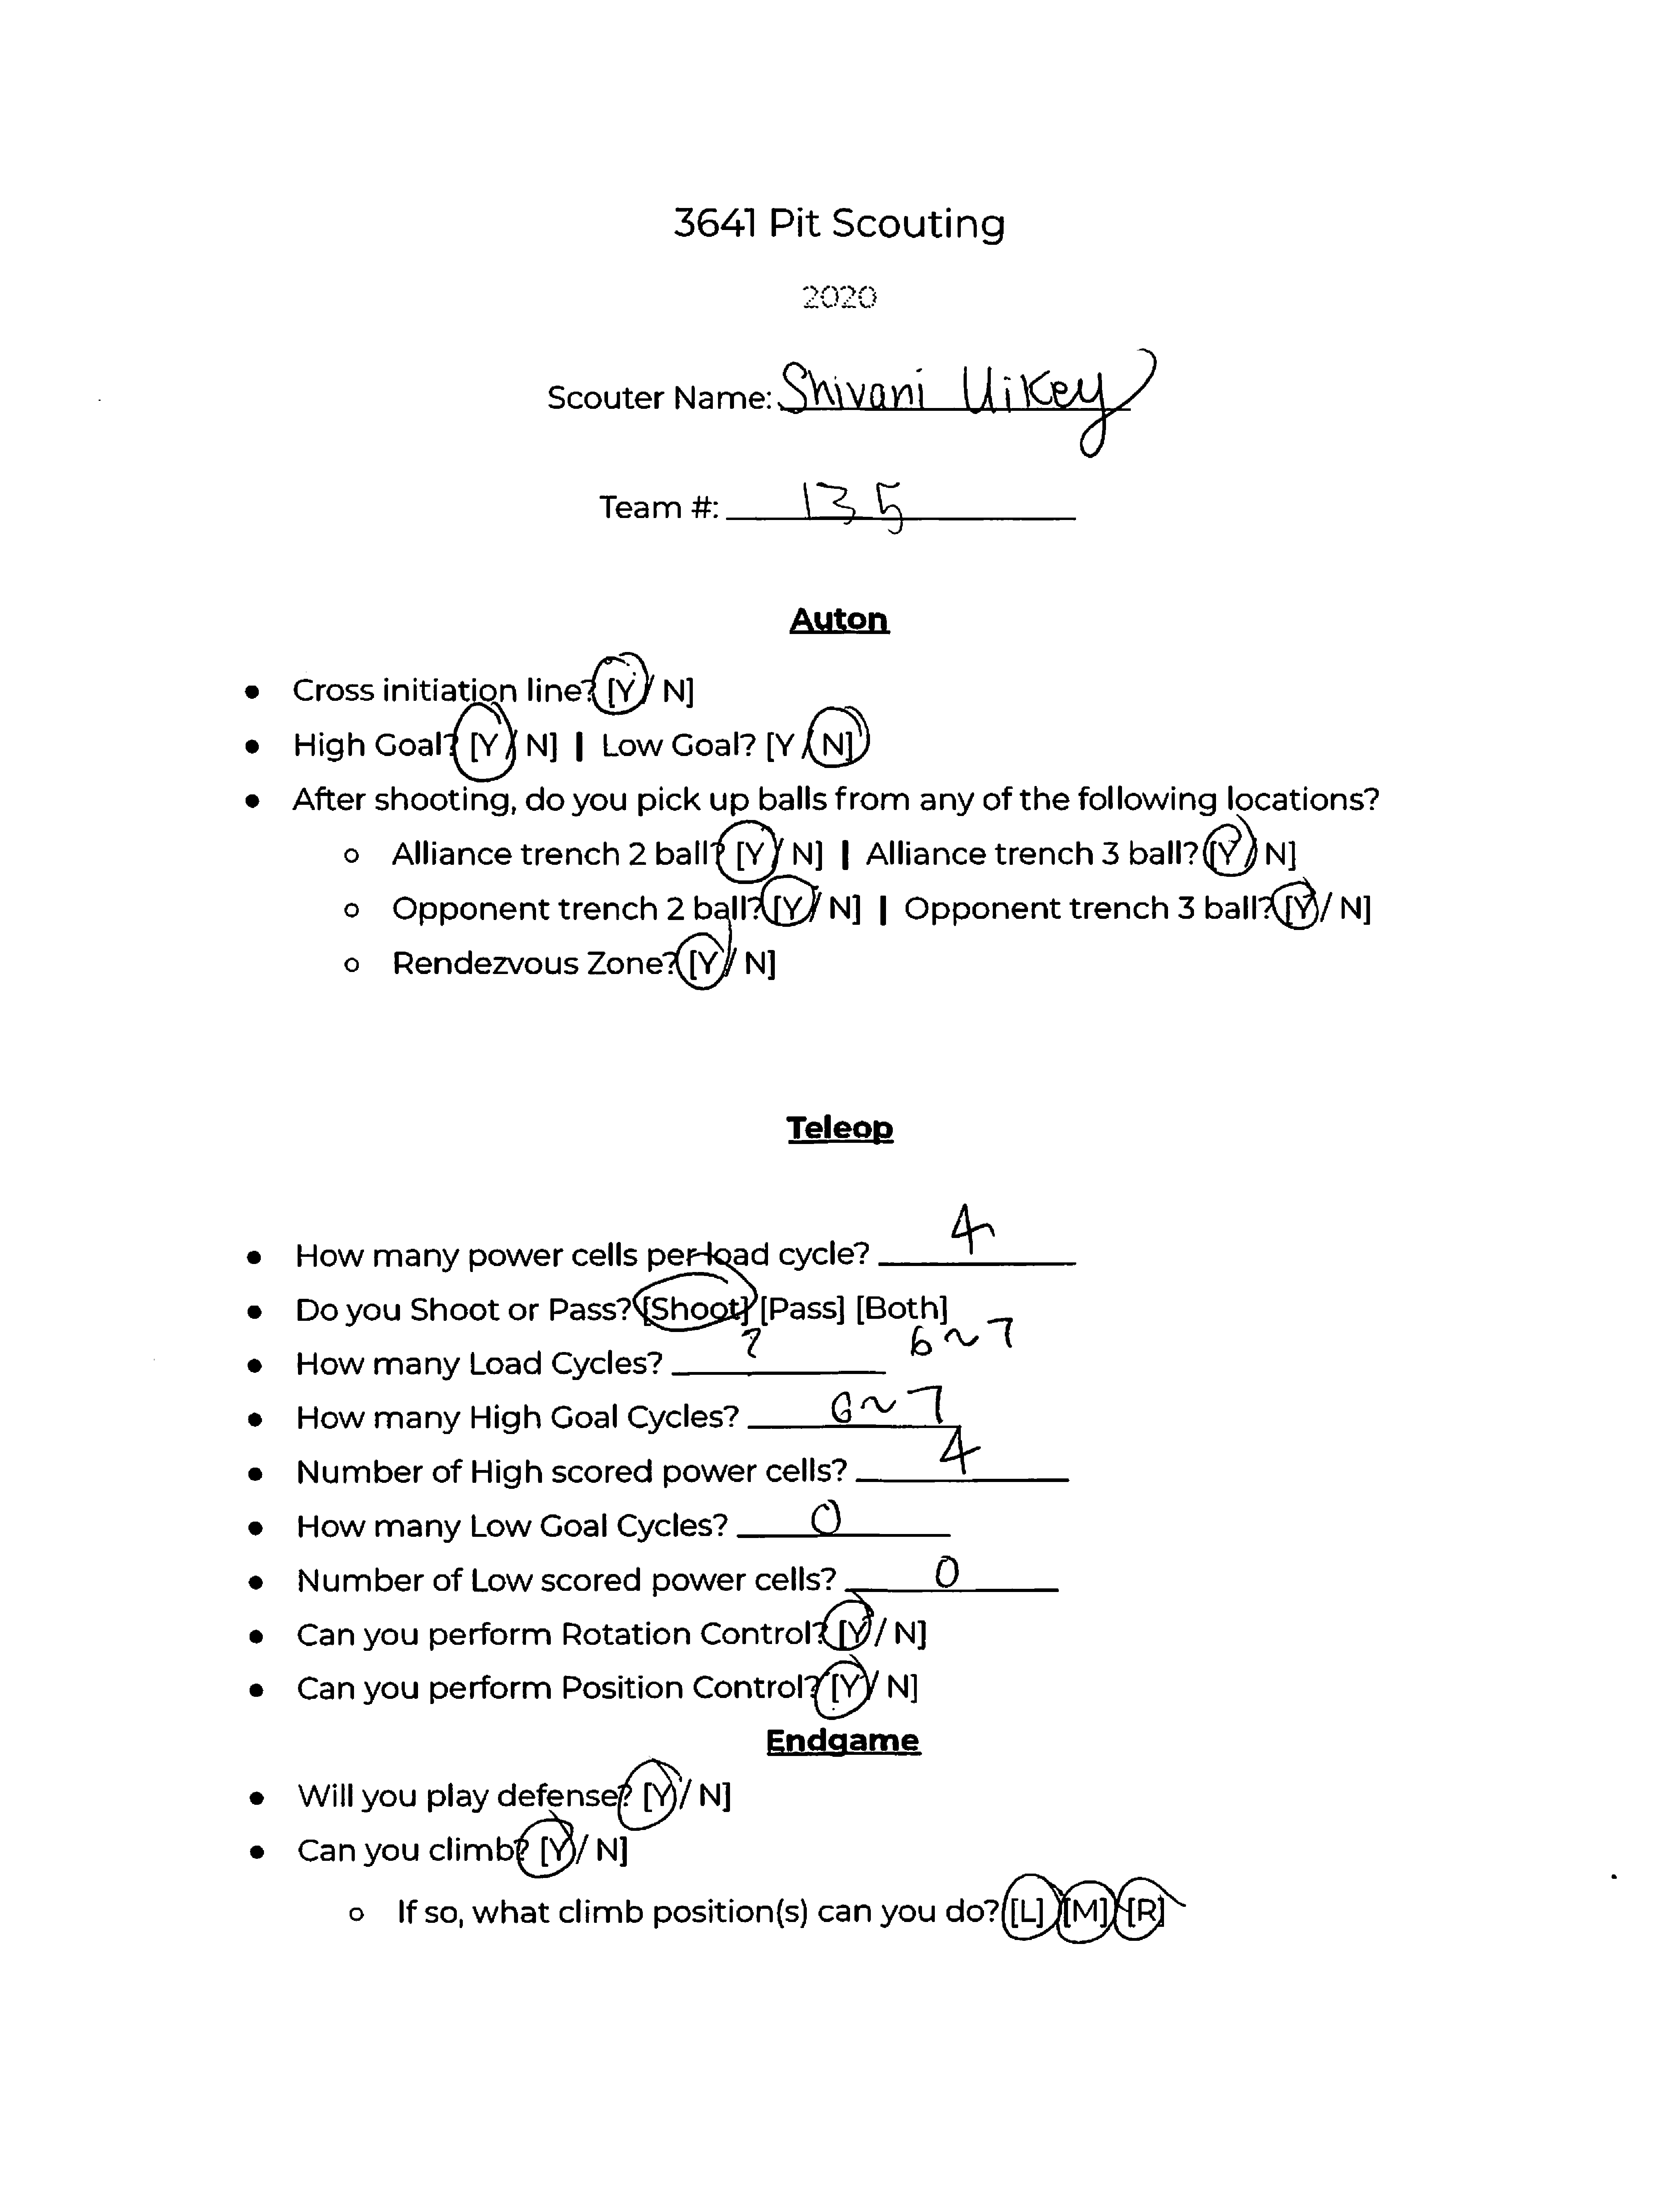 3641 Pit Scouting
2020
Scouter Name: Shivani Uikey
Team #: 135
Auton
● Cross initiation line? [Y / N]
● High Goal? [Y / N] | Low Goal? [Y / N]
● After shooting, do you pick up balls from any of the following locations?
○ Alliance trench 2 ball? [Y / N] | Alliance trench 3 ball? [Y / N]
○ Opponent trench 2 ball? [Y / N] | Opponent trench 3 ball? [Y / N]
○ Rendezvous Zone? [Y / N]
Teleop
● How many power cells per load cycle? 4
● Do you Shoot or Pass? [Shoot] [Pass] [Both]
● How many Load Cycles? ? 6~7
● How many High Goal Cycles? 6~7
● Number of High scored power cells? 4
● How many Low Goal Cycles? 0
● Number of Low scored power cells? 0
● Can you perform Rotation Control? [Y / N]
● Can you perform Position Control? [Y / N]
Endgame
● Will you play defense? [Y / N]
● Can you climb? [Y / N]
○ If so, what climb position(s) can you do? [L] [M] [R]